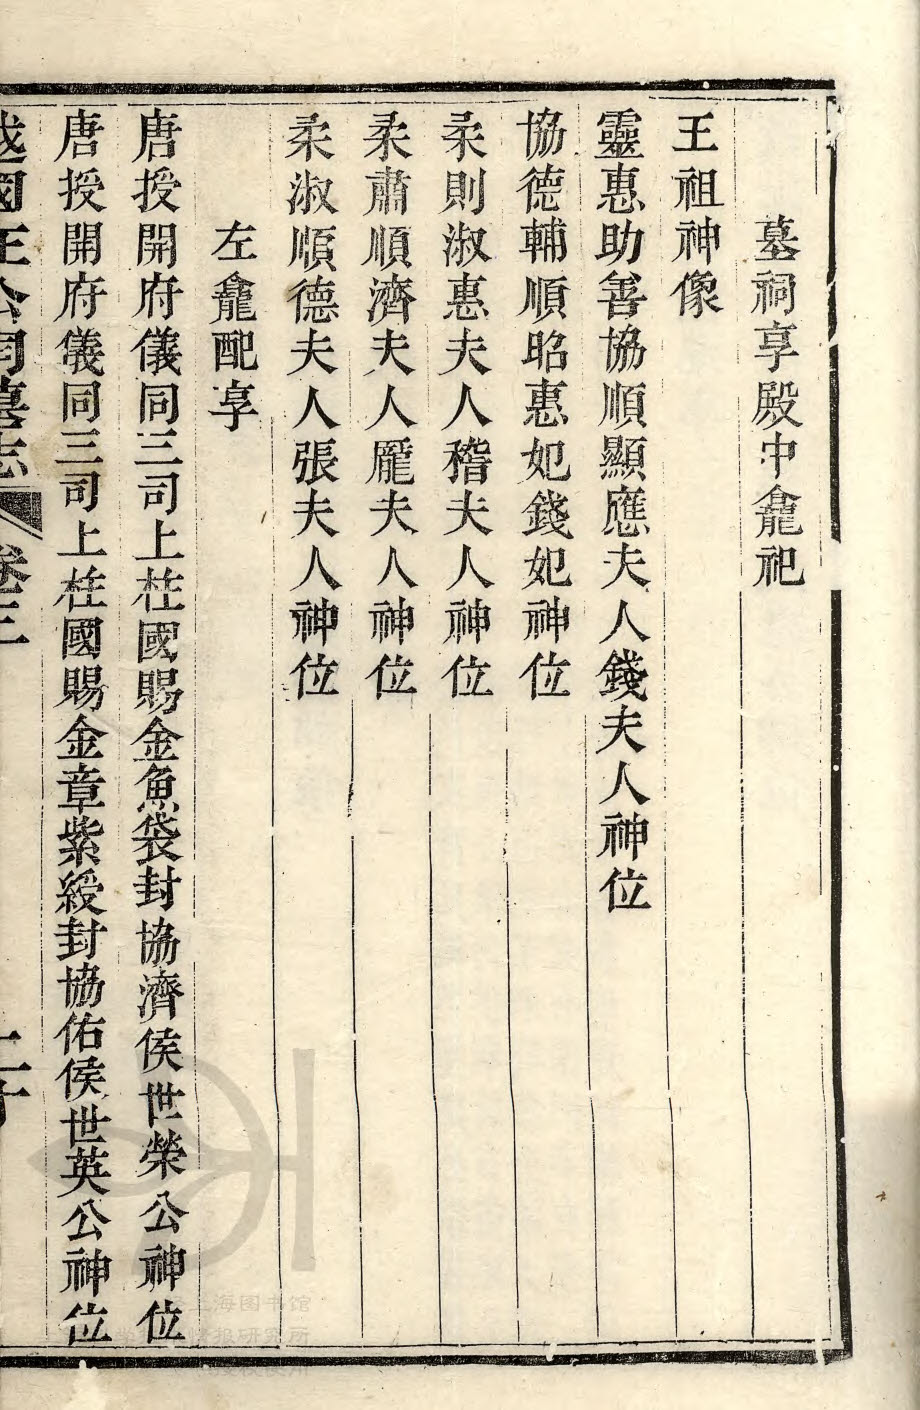 墓祠享殿中龕祀
王祖神像
靈惠助善協順顯應夫人錢夫人神位
協德輔順昭惠妃錢妃神位
柔則淑惠夫人稽夫人神位
柔肅順濟夫人龐夫人神位
柔淑順德夫人張夫人神位
左龕配享
唐授開府儀同三司上柱國賜金魚袋封協濟侯世榮公神位
唐授開府儀同三司上柱國賜金章紫綬封協佑侯世英公神位
越國汪公祠墓志 卷三 二十
上海图书馆